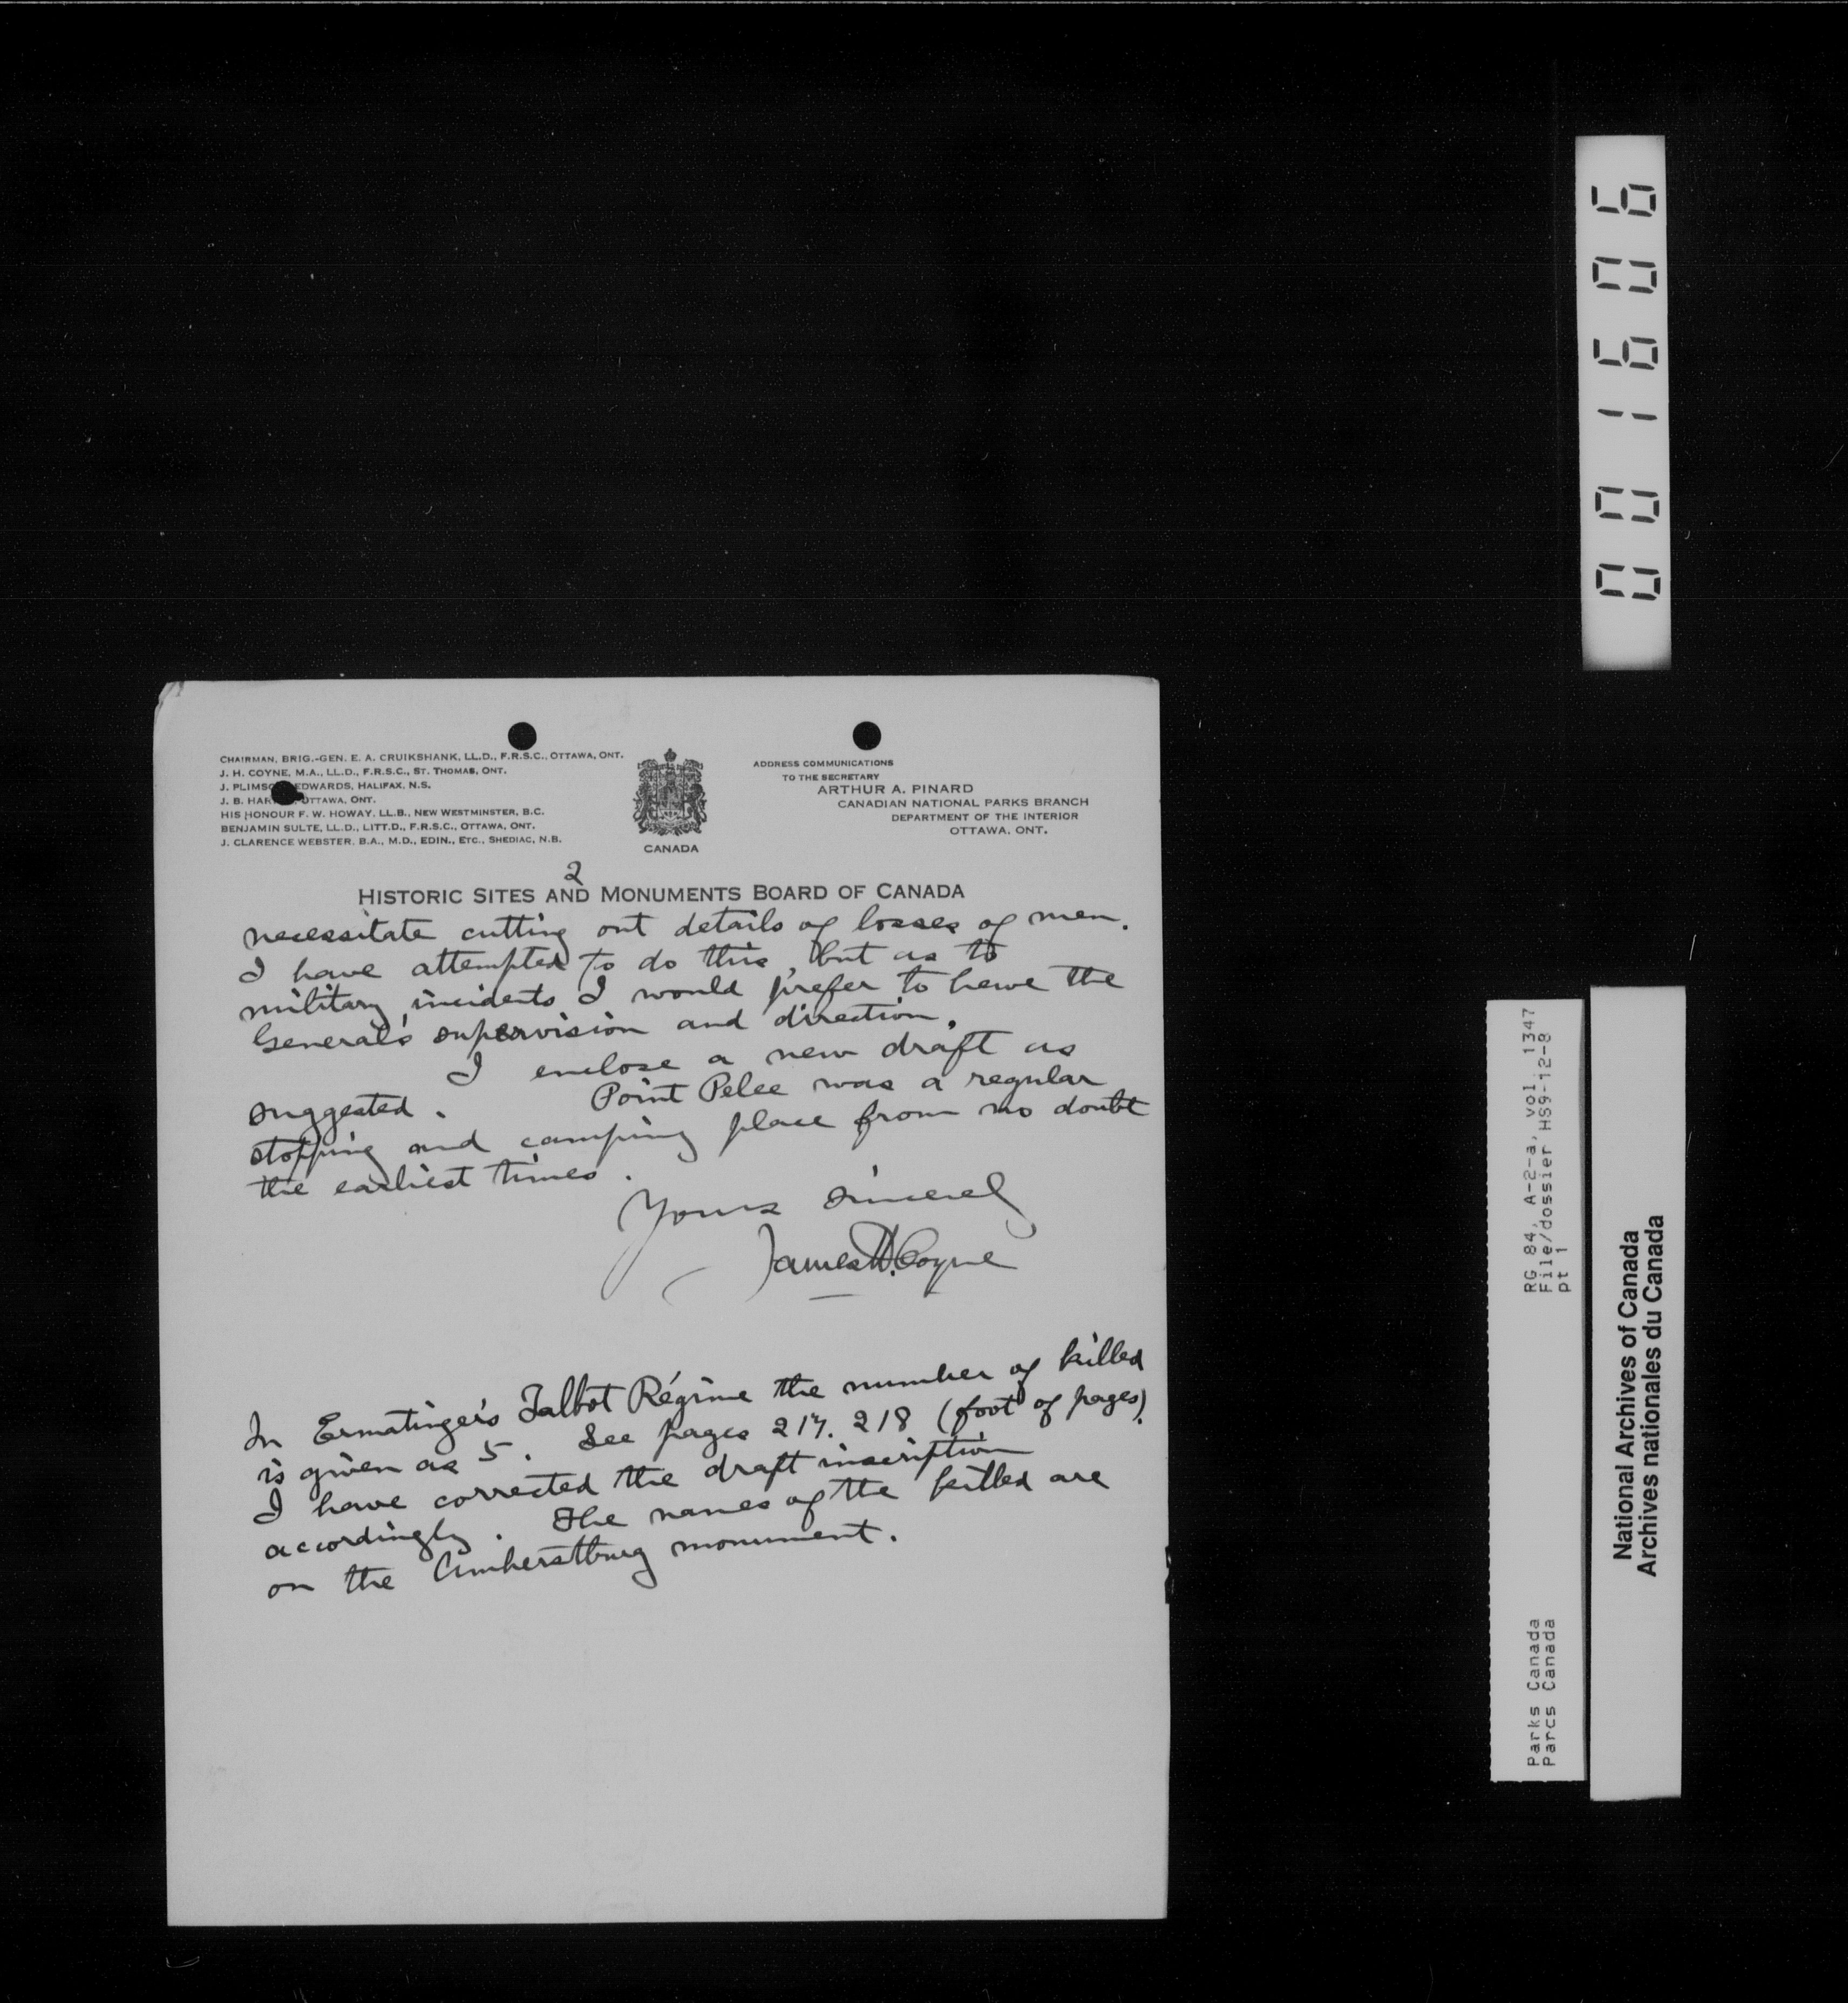 CHAIRMAN, BRIG.-GEN. E. A. CRUIKSHANK, LL.D., F.R.S.C., OTTAWA, ONT.
J. H. COYNE, M.A., LL.D., F.R.S.C., ST. THOMAS, ONT.
J. PLIMSO EDWARDS, HALIFAX, N.S.
J. B. HAR OTTAWA, ONT.
HIS HONOUR F. W. HOWAY, LL.B., NEW WESTMINSTER, B.C.
BENJAMIN SULTE, LL.D., LITT.D., F.R.S.C., OTTAWA, ONT.
J. CLARENCE WEBSTER, B.A., M.D., EDIN., ETC., SHEDIAC, N.B.
CANADA
ADDRESS COMMUNICATIONS
TO THE SECRETARY
ARTHUR A. PINARD
CANADIAN NATIONAL PARKS BRANCH
DEPARTMENT OF THE INTERIOR
OTTAWA, ONT.
2
HISTORIC SITES AND MONUMENTS BOARD OF CANADA
necessitate cutting out details of losses of men.
I have attempted to do this, but as to
military incidents I would prefer to have the
General's supervision and direction.
I enclose a new draft as
suggested. Point Pelee was a regular
stopping and camping place from no doubt
the earliest times.
Yours sincerely
James H. Coyne
In Ermatinger's Talbot Régime the number of killed
is given as 5. See pages 217. 218 (foot of pages).
I have corrected the draft inscription
accordingly. The names of the killed are
on the Amherstburg monument.
001606
RG 84, A-2-a, vol. 1347
File/dossier HS9-12-8
pt 1
Parks Canada
Parcs Canada
National Archives of Canada
Archives nationales du Canada